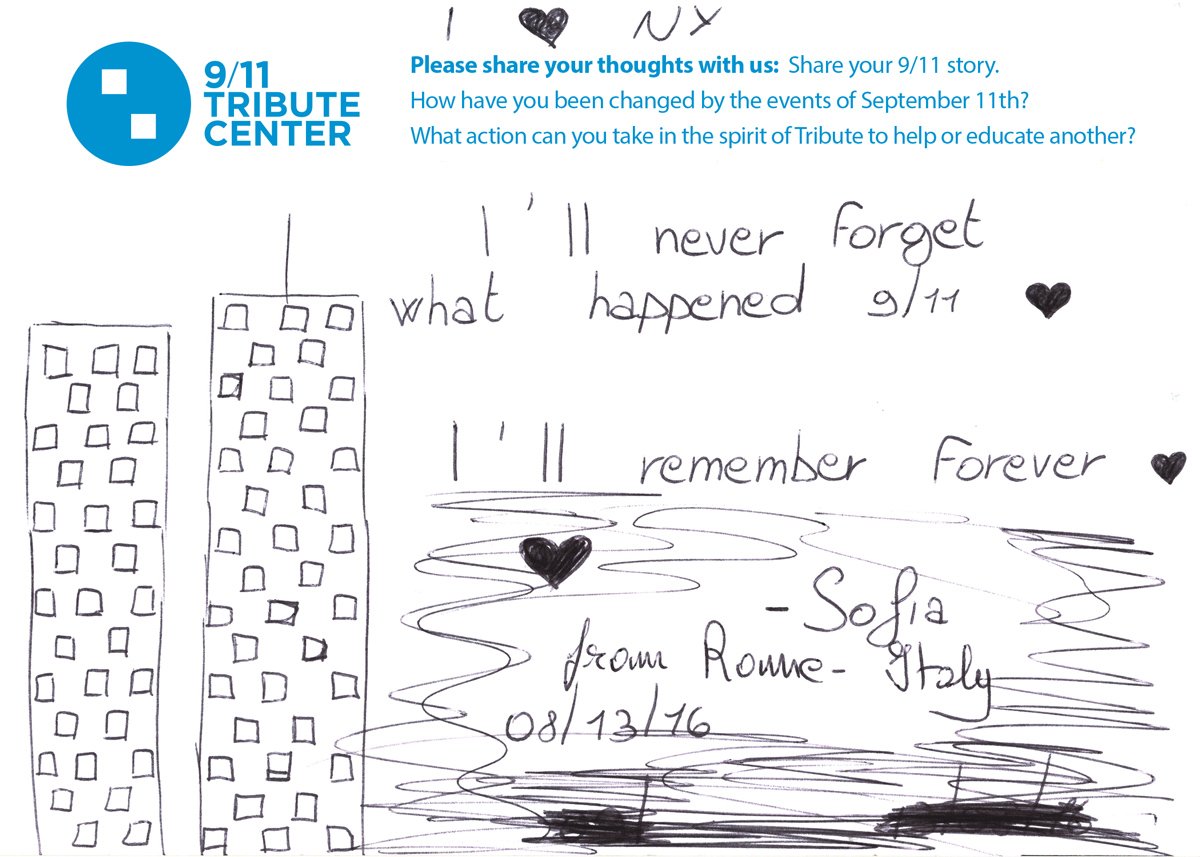 I ♥ NY
9/11
TRIBUTE
CENTER
Please share your thoughts with us: Share your 9/11 story.
How have you been changed by the events of September 11th?
What action can you take in the spirit of Tribute to help or educate another?
I'll never forget
what happened 9/11 ♥
I'll remember Forever ♥
♥
-Sofia
from Rome- Italy
08/13/16